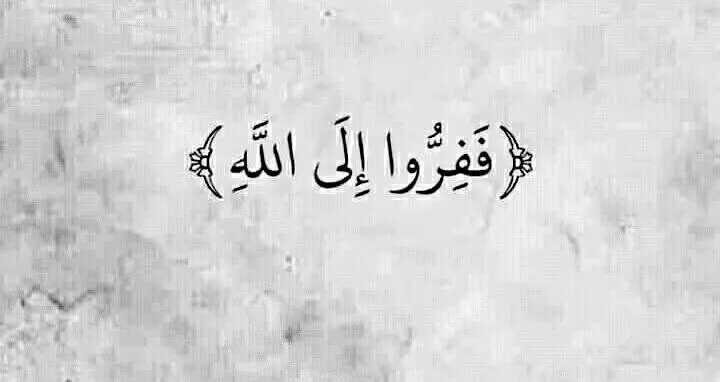 ﴿فَفِرُّوا إِلَى اللَّهِ﴾